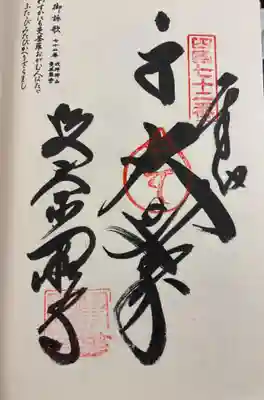 奉納
四國七十二番
大日如来
曼荼羅寺
御詠歌
七十二番 我拝師山
曼荼羅寺
わずかにも曼荼羅おがむ人はたゞ
ふたゝびみたびかへらざらまし